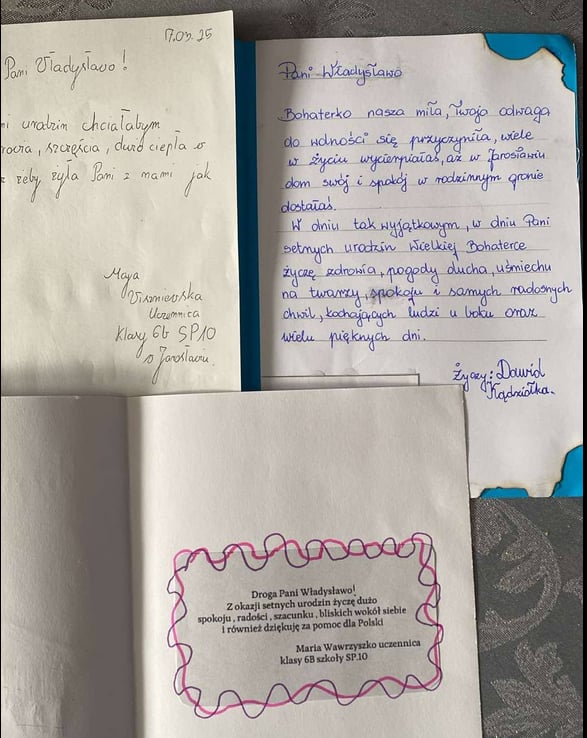 17.03.25
Pani Władysławo!
urodzin chciałabym
szczęścia, dużo ciepła
żeby żyła Pani z nami jak
Maya
Wiszniewska
Uczennica
klasy 6b SP.10
w Jarosławiu.
Pani Władysławo
Bohaterko nasza miła, Twoja odwaga
do wolności się przyczyniła, wiele
w życiu wycierpiałaś, aż w Jarosławiu
dom swój i spokój w rodzinnym gronie
dostałaś.
W dniu tak wyjątkowym, w dniu Pani
setnych urodzin Wielkiej Bohaterce
życzę zdrowia, pogody ducha, uśmiechu
na twarzy, spokoju i samych radosnych
chwil, kochających ludzi u boku oraz
wielu pięknych dni.
Życzy: Dawid
Kądziołka.
Droga Pani Władysławo!
Z okazji setnych urodzin życzę dużo
spokoju , radości , szacunku , bliskich wokół siebie
i również dziękuję za pomoc dla Polski
Maria Wawrzyszko uczennica
klasy 6B szkoły SP.10